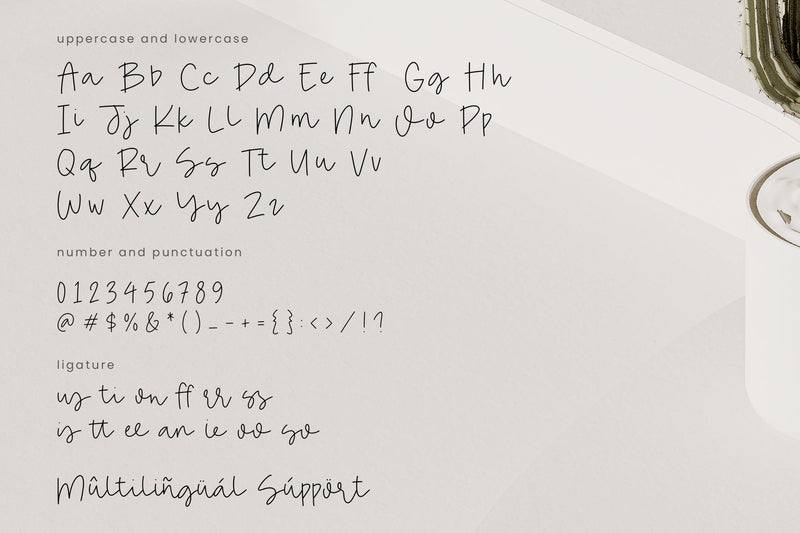 uppercase and lowercase
Aa Bb Cc Dd Ee Ff Gg Hh
Ii Jj Kk Ll Mm Nn Oo Pp
Qq Rr Ss Tt Uu Vv
Ww Xx Yy Zz
number and punctuation
0123456789
@ # $ % & * ( ) _ - + = { } : < > / ! ?
ligature
us ti on ff rr ss
is tt ee an ie oo so
Mûltiliñgüál Súppört